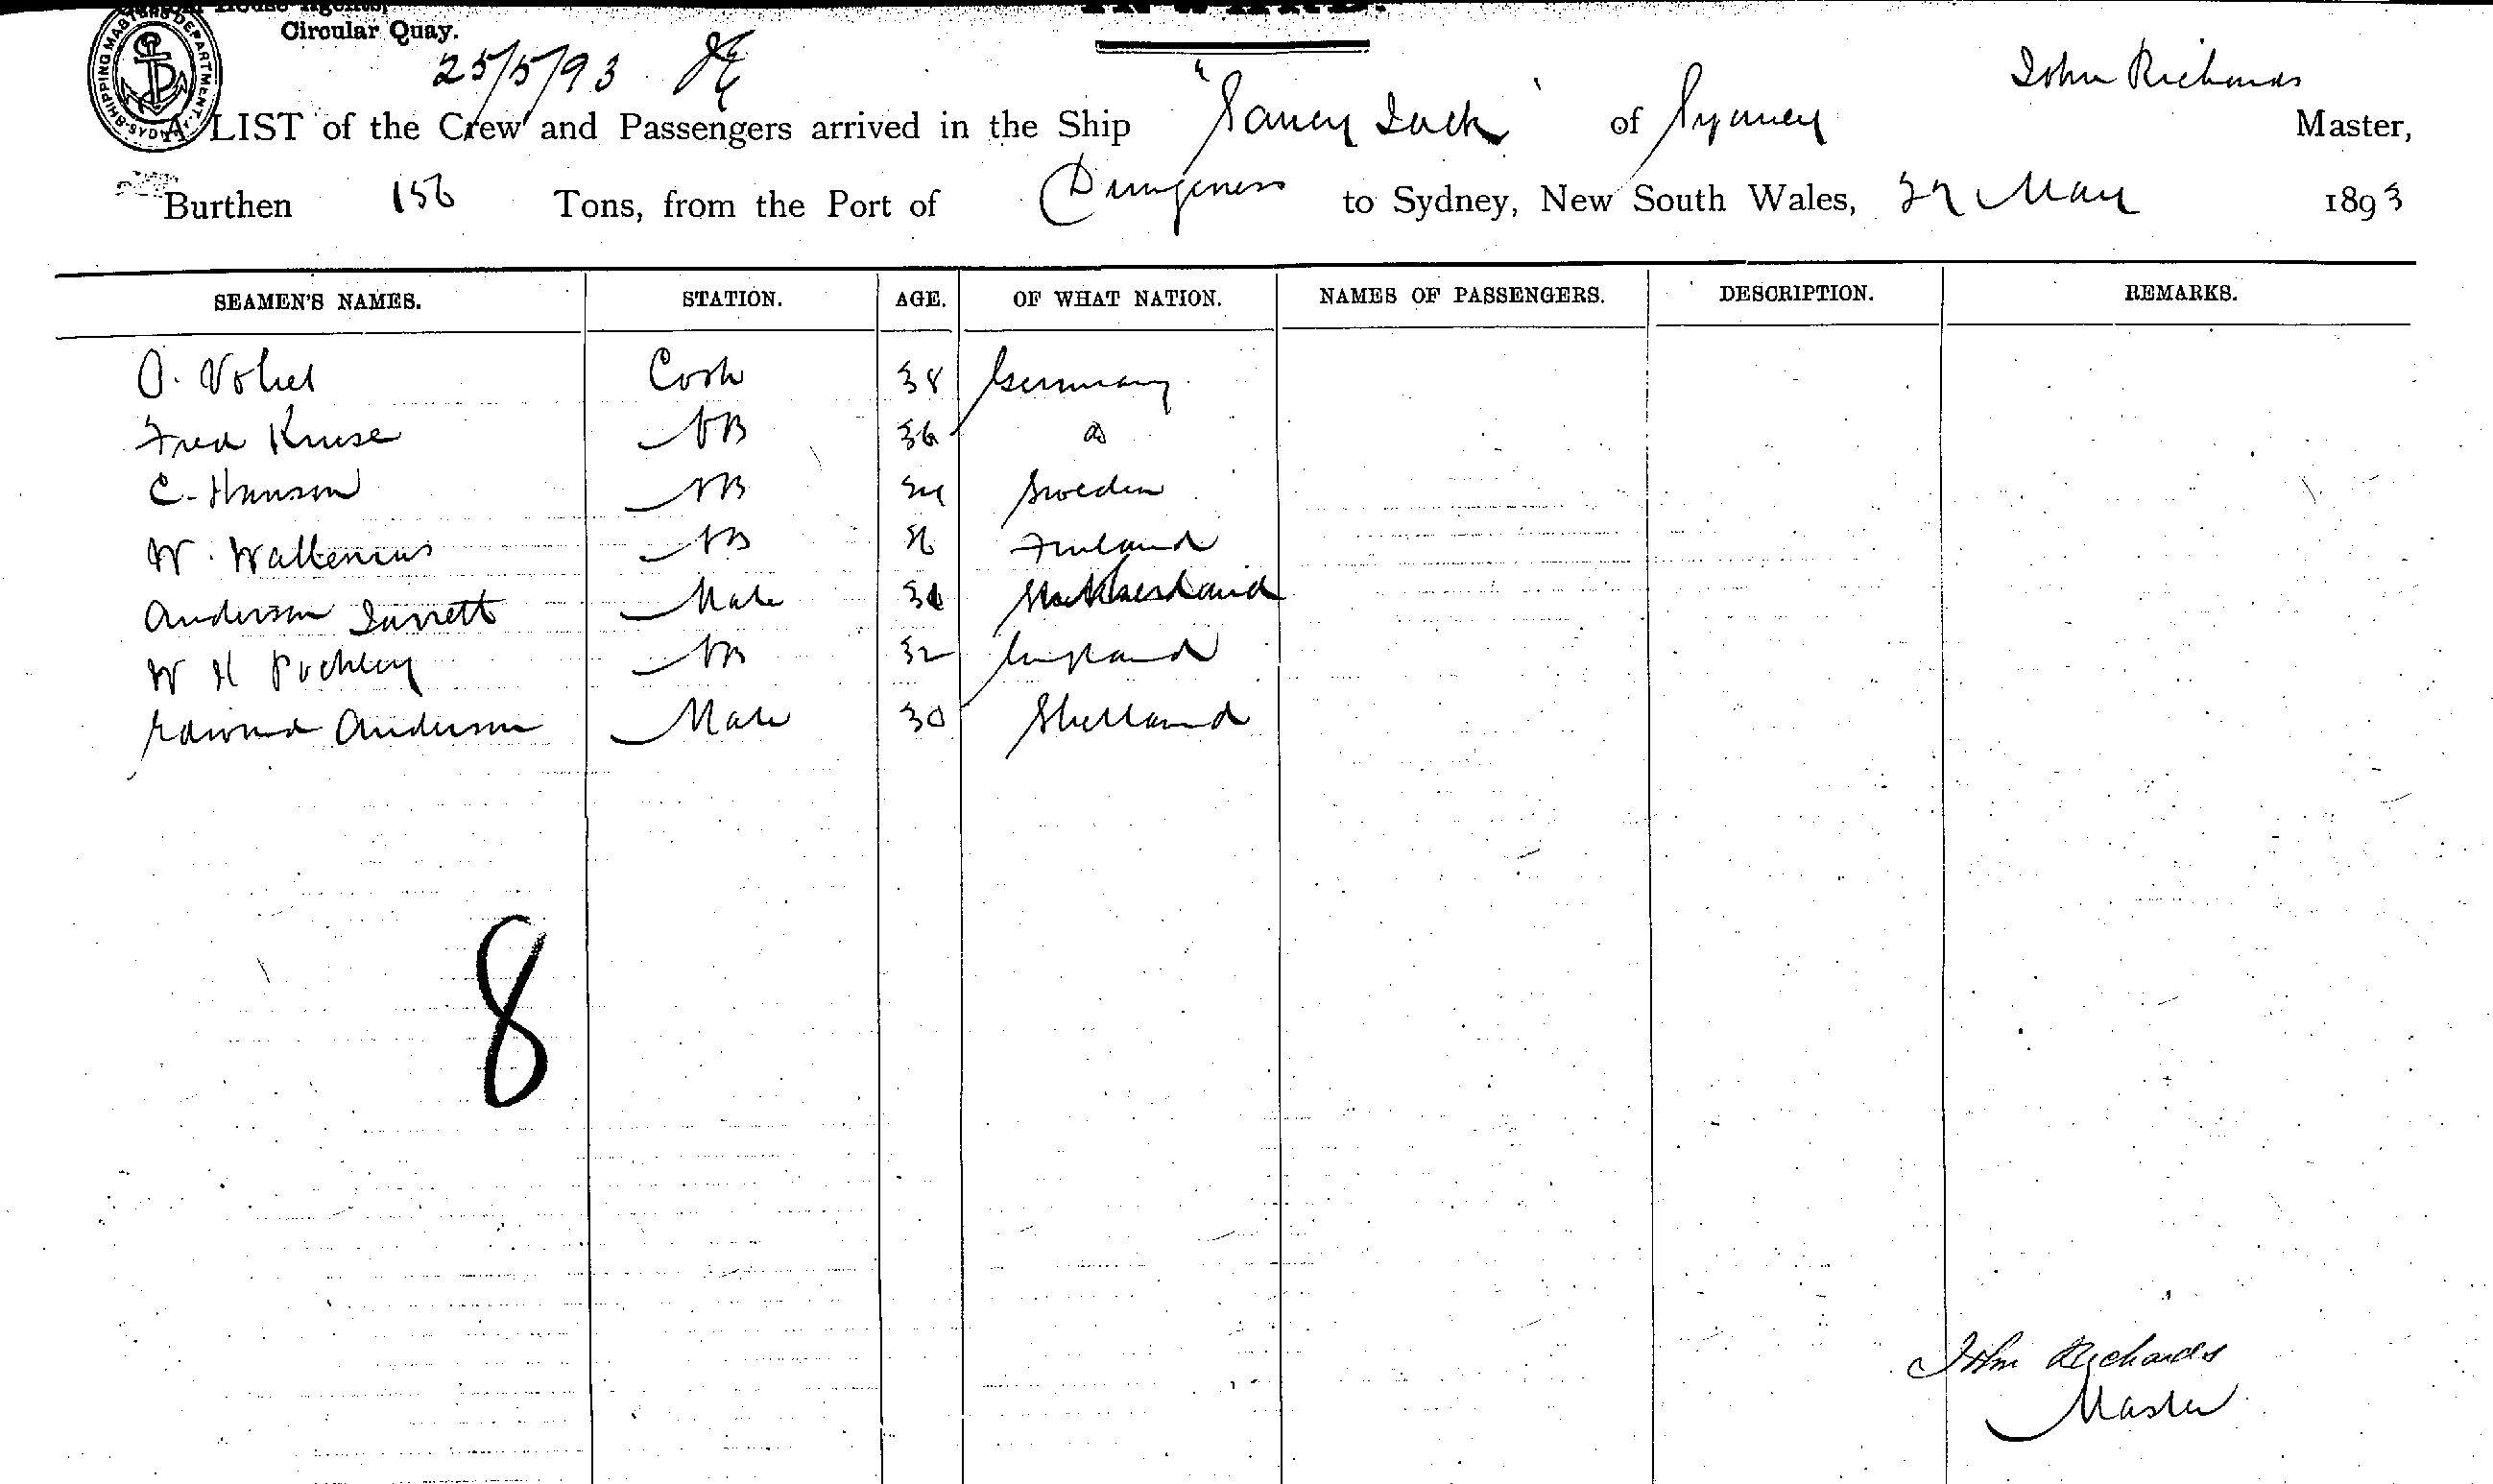 House Agents,
Circular Quay.
SHIPPING MASTERS DEPARTMENT. SYDNEY
25/5/93
John Richards
A LIST of the Crew and Passengers arrived in the Ship "Saucy Jack" of Sydney Master,
Burthen 156 Tons, from the Port of Dungeness to Sydney, New South Wales, May 1893
SEAMEN'S NAMES. STATION. AGE. OF WHAT NATION. NAMES OF PASSENGERS. DESCRIPTION. REMARKS.
O. Cook 38 Germany
Fred Kruse AB 36
C. Hanson AB Sweden
W. Wallenius AB Finland
Anderson Jarrett Mate
W H AB 32 England
Edmund Anderson Mate 30 Shetland
8
John Richards
Master